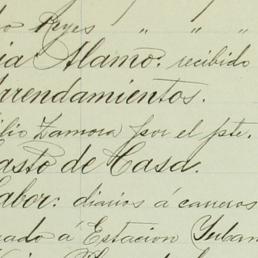 o Reyes " " "
ia Alamo: recibido
rrendamientos.
ilio Zamora por el pte.
asto de Casa.
abor: diarios á carreros
uado á Estacion Yuban